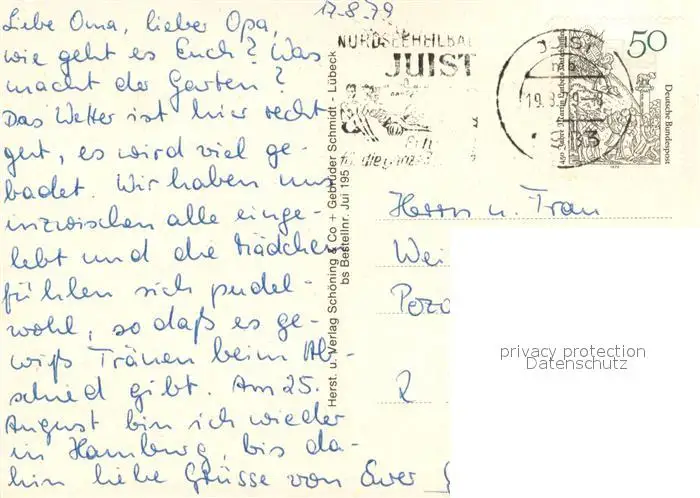 17.8.79
Liebe Oma, lieber Opa,
wie geht es Euch? Was
macht der Garten?
Das Wetter ist hier recht
gut, es wird viel ge-
badet. Wir haben uns
inzwischen alle einge-
lebt und die Mädchen
fühlen sich pudel-
wohl, so daß es ge-
wiß Tränen beim Ab-
schied gibt. Am 25.
August bin ich wieder
in Hamburg, bis da-
hin liebe Grüsse von Euer
Herst. u. Verlag Schöning & Co + Gebrüder Schmidt - Lübeck
bs Bestellnr. Jui 195
NORDSEEHEILBAD
JUIST
für die ganze
JUIST
19.8.79
2983
50
Deutsche Bundespost
Herrn u. Frau
Wei
2
privacy protection
Datenschutz